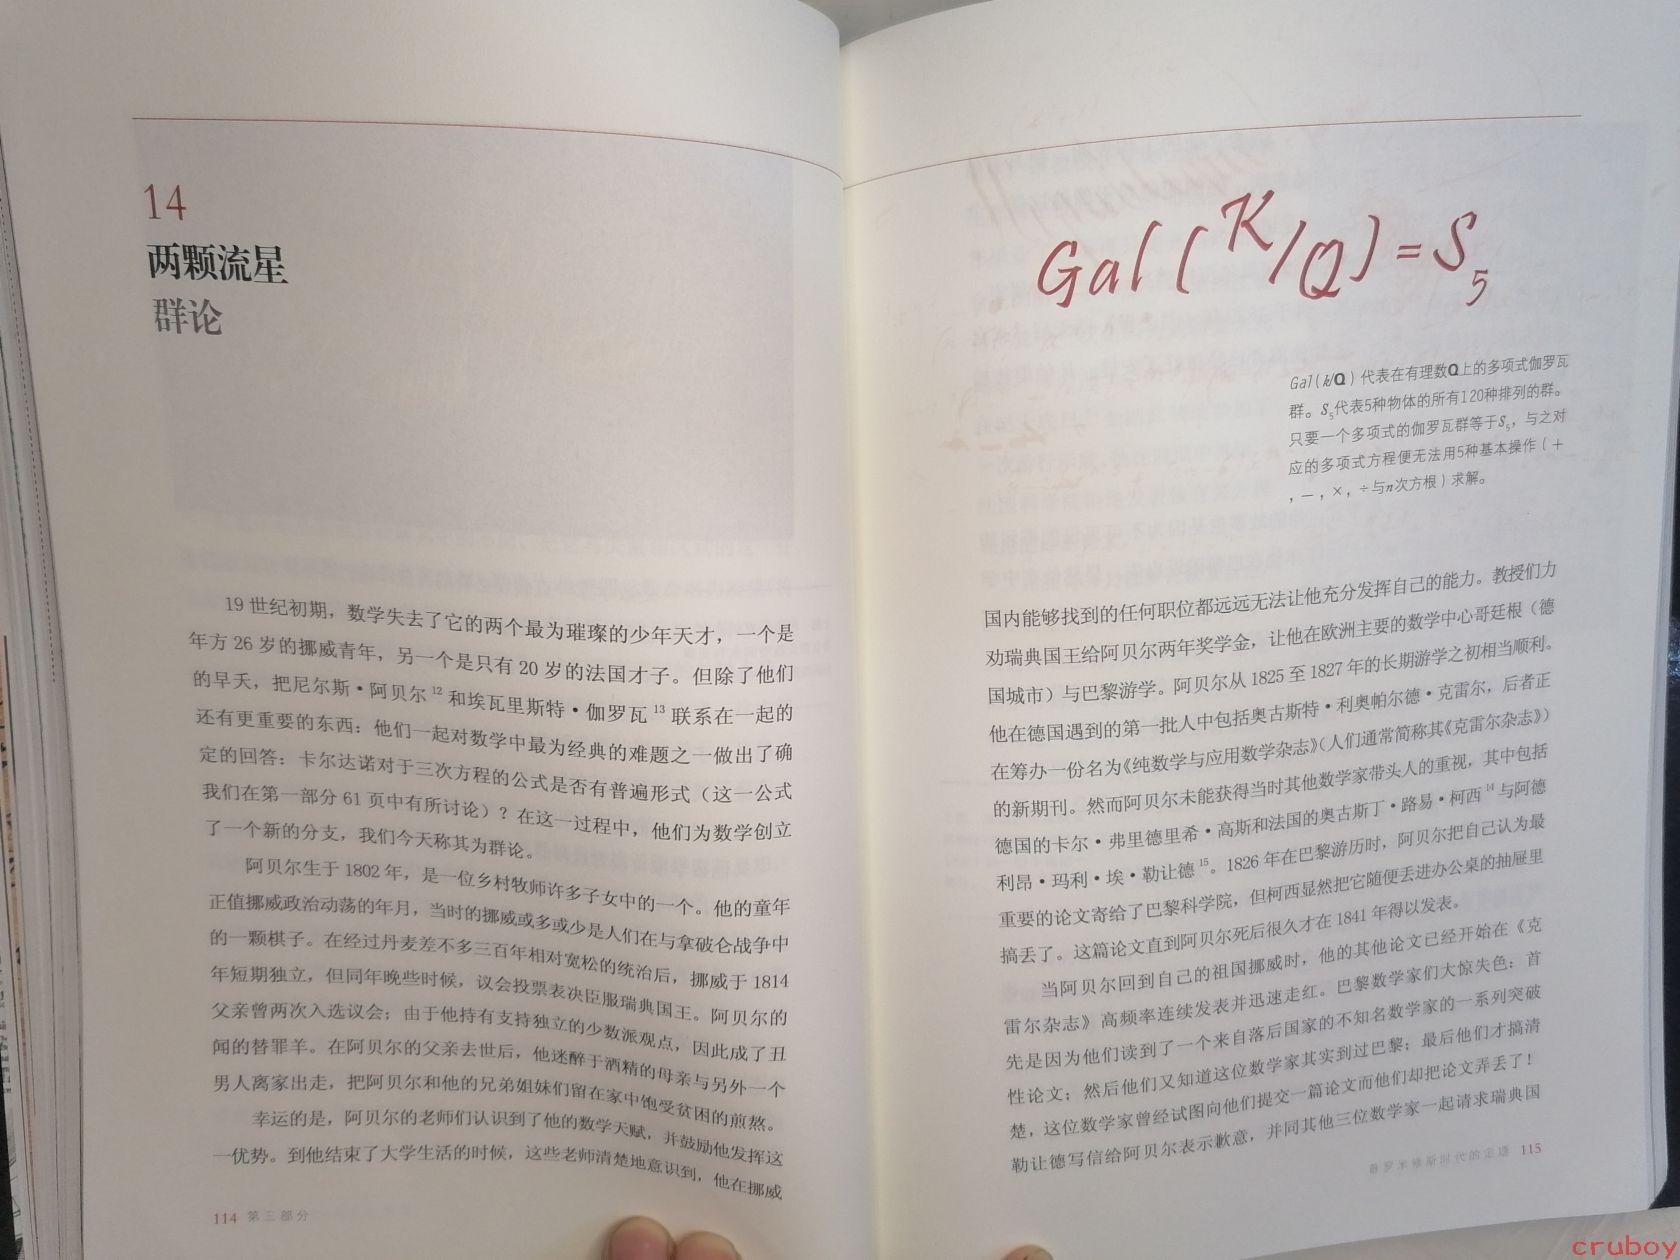 14
两颗流星
群论
19 世纪初期，数学失去了它的两个最为璀璨的少年天才，一个是
年方 26 岁的挪威青年，另一个是只有 20 岁的法国才子。但除了他们
的早夭，把尼尔斯·阿贝尔12和埃瓦里斯特·伽罗瓦13联系在一起的
还有更重要的东西：他们一起对数学中最为经典的难题之一做出了确
定的回答：卡尔达诺对于三次方程的公式是否有普遍形式（这一公式
我们在第一部分 61 页中有所讨论）？在这一过程中，他们为数学创立
了一个新的分支，我们今天称其为群论。
阿贝尔生于 1802 年，是一位乡村牧师许多子女中的一个。他的童年
正值挪威政治动荡的年月，当时的挪威或多或少是人们在与拿破仑战争中
的一颗棋子。在经过丹麦差不多三百年相对宽松的统治后，挪威于 1814
年短期独立，但同年晚些时候，议会投票表决臣服瑞典国王。阿贝尔的
父亲曾两次入选议会；由于他持有支持独立的少数派观点，因此成了丑
闻的替罪羊。在阿贝尔的父亲去世后，他迷醉于酒精的母亲与另外一个
男人离家出走，把阿贝尔和他的兄弟姐妹们留在家中饱受贫困的煎熬。
幸运的是，阿贝尔的老师们认识到了他的数学天赋，并鼓励他发挥这
一优势。到他结束了大学生活的时候，这些老师清楚地意识到，他在挪威
114 第三部分
Gal(K/Q)=S5
Gal(k/Q）代表在有理数Q上的多项式伽罗瓦
群。S5代表5种物体的所有120种排列的群。
只要一个多项式的伽罗瓦群等于S5，与之对
应的多项式方程便无法用5种基本操作（＋
，－，×，÷与n次方根）求解。
国内能够找到的任何职位都远远无法让他充分发挥自己的能力。教授们力
劝瑞典国王给阿贝尔两年奖学金，让他在欧洲主要的数学中心哥廷根（德
国城市）与巴黎游学。阿贝尔从 1825 至 1827 年的长期游学之初相当顺利。
他在德国遇到的第一批人中包括奥古斯特·利奥帕尔德·克雷尔，后者正
在筹办一份名为《纯数学与应用数学杂志》（人们通常简称其《克雷尔杂志》）
的新期刊。然而阿贝尔未能获得当时其他数学家带头人的重视，其中包括
德国的卡尔·弗里德里希·高斯和法国的奥古斯丁·路易·柯西14与阿德
利昂·玛利·埃·勒让德15。1826 年在巴黎游历时，阿贝尔把自己认为最
重要的论文寄给了巴黎科学院，但柯西显然把它随便丢进办公桌的抽屉里
搞丢了。这篇论文直到阿贝尔死后很久才在 1841 年得以发表。
当阿贝尔回到自己的祖国挪威时，他的其他论文已经开始在《克
雷尔杂志》高频率连续发表并迅速走红。巴黎数学家们大惊失色：首
先是因为他们读到了一个来自落后国家的不知名数学家的一系列突破
性论文；然后他们又知道这位数学家其实到过巴黎；最后他们才搞清
楚，这位数学家曾经试图向他们提交一篇论文而他们却把论文弄丢了！
勒让德写信给阿贝尔表示歉意，并同其他三位数学家一起请求瑞典国
普罗米修斯时代的定理 115
cruboy